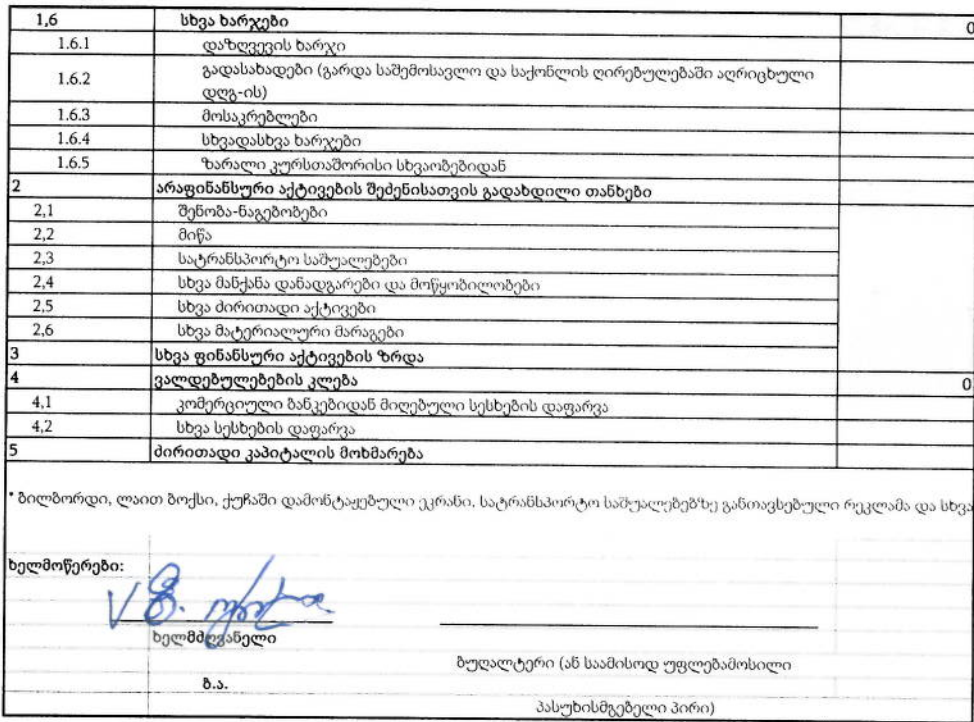 1,6 სხვა ხარჯები 0
1.6.1 დაზღვევის ხარჯი
1.6.2 გადასახადები (გარდა საშემოსავლო და საქონლის ღირებულებაში აღრიცხული
დღგ-ის)
1.6.3 მოსაკრებლები
1.6.4 სხვადასხვა ხარჯები
1.6.5 ზარალი კურსთაშორისი სხვაობებიდან
2 არაფინანსური აქტივების შეძენისათვის გადახდილი თანხები
2,1 შენობა-ნაგებობები
2,2 მიწა
2,3 სატრანსპორტო საშუალებები
2,4 სხვა მანქანა დანადგარები და მოწყობილობები
2,5 სხვა ძირითადი აქტივები
2,6 სხვა მატერიალური მარაგები
3 სხვა ფინანსური აქტივების ზრდა
4 ვალდებულებების კლება 0
4,1 კომერციული ბანკებიდან მიღებული სესხების დაფარვა
4,2 სხვა სესხების დაფარვა
5 ძირითადი კაპიტალის მოხმარება
* ბილბორდი, ლაით ბოქსი, ქუჩაში დამონტაჟებული ეკრანი, სატრანსპორტო საშუალებებზე განთავსებული რეკლამა და სხვა
ხელმოწერები:
ხელმძღვანელი
ბუღალტერი (ან საამისოდ უფლებამოსილი
ბ.ა.
პასუხისმგებელი პირი)